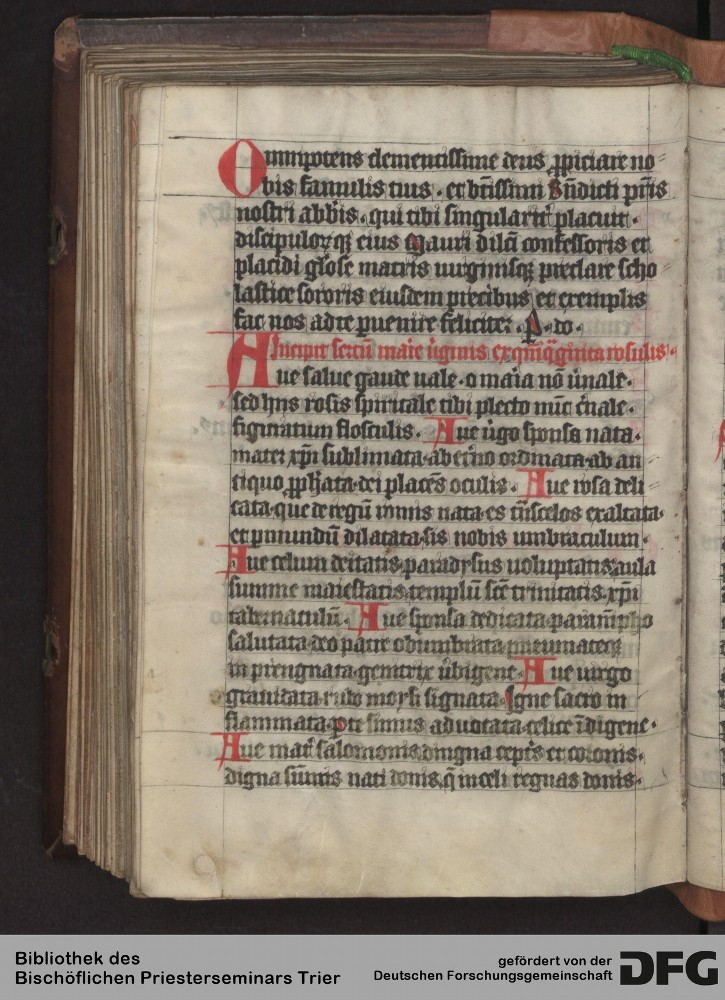 Omnipotens clementissime deus ꝓpiciare no⸗
bis famulis tuis · et bt̄issimi Bn̄dicti pr̄is
nostri abb̄is · qui tibi singularit̾ placuit ·
discipuloꝝqꝫ eius Mauri dilc̄i confessoris et
placidi gl̄ose matris uirginisqꝫ preclare scho
lastice sororis eiusdem precibus et exemplis
fac nos ad te ꝑuenire feliciter · P · do ·
Incipit sertū marie v̾ginis ex qm̄q̄ginta rosulis ·
Aue salue gaude uale · o maria nō v̾nale ·
sed hn̄s rosis spiritale tibi plecto nūc c̾nale ·
figuratum flosculis · Aue v̾go sponsa nata ·
mater xp̄i sublimata · ab et̾no ordinata · ab an⸗
tiquo ꝓph̄ata · dei placēs oculis · Aue rosa deli⸗
cata · que de regū nata es · exaltata ·
et ꝑ mundū dilatata · sis nobis umbraculum ·
Aue celum deitatis · paradysus uoluptatis · aula
summe maiestatis · templū scē trinitatis · xp̄i
tab̾naculū · Aue sponsa dedicata · paranīpho
salutata · deo patre obumbrata · pneumateqꝫ
in pregnata · genitrix v̾bigene · Aue uirgo
grauidata · rubo moysi signata · Igne sacro in
flammata · ꝑ te simus aduocata · celice īdigene ·
Aue mat̾ salomonis · digna sceptr̄is et coronis ·
digna sūmis nati donis · q̄ in celi regnas donis ·
Bibliothek des
Bischöflichen Priesterseminars Trier
gefördert von der
Deutschen Forschungsgemeinschaft
DFG